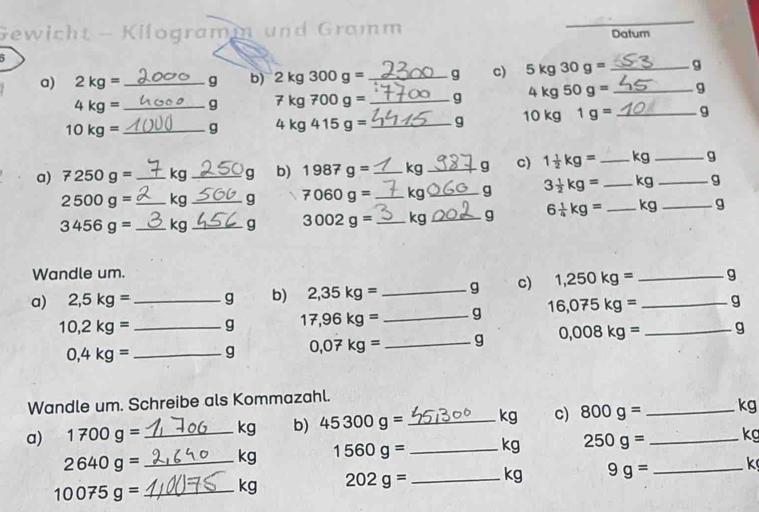 Gewicht – Kilogramm und Gramm
Datum
a) 2 kg = 2000 g b) 2 kg 300 g = 2300 g c) 5 kg 30 g = 53 g
4 kg = 4000 g 7 kg 700 g = 7700 g 4 kg 50 g = 45 g
10 kg = 1000 g 4 kg 415 g = 4415 g 10 kg 1 g = 10 g
a) 7250 g = 7 kg 250 g b) 1987 g = 1 kg 987 g c) 1½ kg = ___ kg ___ g
2500 g = 2 kg 500 g 7060 g = 7 kg 060 g 3½ kg = ___ kg ___ g
3456 g = 3 kg 456 g 3002 g = 3 kg 002 g 6¼ kg = ___ kg ___ g
Wandle um.
a) 2,5 kg = ___ g b) 2,35 kg = ___ g c) 1,250 kg = ___ g
10,2 kg = ___ g 17,96 kg = ___ g 16,075 kg = ___ g
0,4 kg = ___ g 0,07 kg = ___ g 0,008 kg = ___ g
Wandle um. Schreibe als Kommazahl.
a) 1700 g = 1,700 kg b) 45300 g = 45,300 kg c) 800 g = ___ kg
2640 g = 2,640 kg 1560 g = ___ kg 250 g = ___ kg
10075 g = 1,0075 kg 202 g = ___ kg 9 g = ___ kg